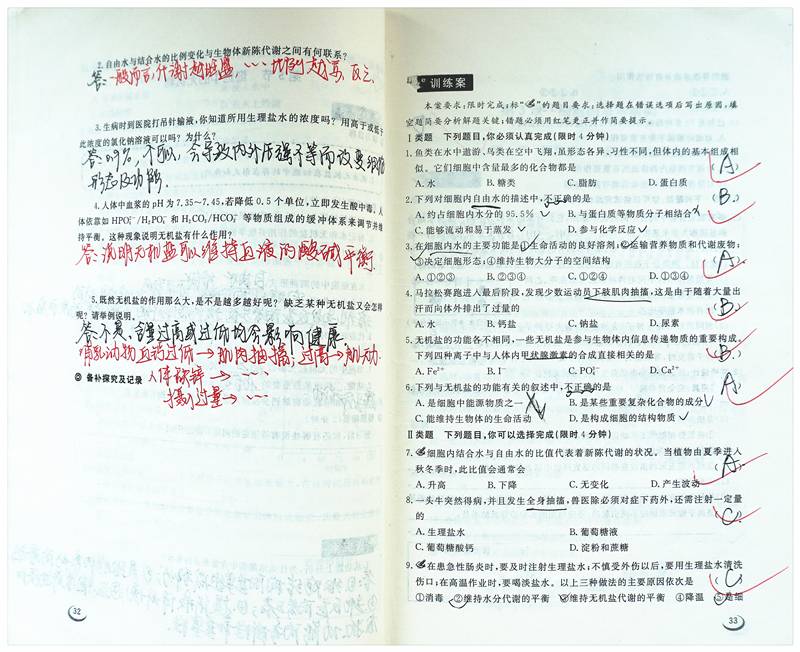 2. 自由水与结合水的比例变化与生物体新陈代谢之间有何联系?
答:一般而言,代谢越旺盛,…比例越高,反之
3. 生病时到医院打吊针输液,你知道所用生理盐水的浓度吗?用高于或低于
此浓度的氯化钠溶液可以吗?为什么?
答:0.9%,不可以,会导致内外压强不等而改变细胞
形态及功能.
4. 人体中血浆的pH为7.35~7.45,若降低0.5个单位,立即发生酸中毒。人
体依靠如HPO₄²⁻/H₂PO₄⁻和H₂CO₃/HCO₃⁻等物质组成的缓冲体系来调节并维
持平衡。这种现象说明无机盐有什么作用?
答:说明无机盐可以维持血液的酸碱平衡.
5. 既然无机盐的作用那么大,是不是越多越好呢?缺乏某种无机盐又会怎样
呢?请举例说明。
答不是,含量过高或过低均会影响健康.
哺乳动物血钙过低→肌肉抽搐,过高→肌无力
◎ 备补探究及记录 人体缺锌→…
摄入过量→…
32
训练案
本案要求:限时完成;标“”的题目要求,选择题在错误选项后写出原因,填
空题简要分析解题关键;错题必须用红笔更正并作简要提示。
Ⅰ类题 下列题目,你必须认真完成(限时4分钟)
1. 鱼类在水中遨游,鸟类在空中飞翔,虽形态各异,习性不同,但体内的基本组成相
似。它们细胞中含量最多的化合物都是 (A)
A. 水 B. 糖类 C. 脂肪 D. 蛋白质
2. 下列对细胞内自由水的描述中,不正确的是 (B)
A. 约占细胞内水分的95.5% B. 与蛋白质等物质分子相结合
C. 能够流动和易于蒸发 D. 参与化学反应
3. 在细胞内水的主要功能是①生命活动的良好溶剂;②运输营养物质和代谢废物;
③决定细胞形态;④维持生物大分子的空间结构 (A)
A. ①②③ B. ②③④ C. ①②④ D. ①③④
4. 马拉松赛跑进入最后阶段,发现少数运动员下肢肌肉抽搐,这是由于随着大量出
汗而向体外排出了过量的 (B)
A. 水 B. 钙盐 C. 钠盐 D. 尿素
5. 无机盐的功能各不相同,一些无机盐是参与生物体内信息传递物质的重要构成。
下列四种离子中与人体内甲状腺激素的合成直接相关的是 (B)
A. Fe²⁺ B. I⁻ C. PO₄³⁻ D. Ca²⁺
6. 下列与无机盐的功能有关的叙述中,不正确的是 (A)
A. 是细胞中能源物质之一 B. 是某些重要复杂化合物的成分
C. 能维持生物体的生命活动 D. 是构成细胞的结构物质
Ⅱ类题 下列题目,你可以选择完成(限时4分钟)
7. 细胞内结合水与自由水的比值代表着新陈代谢的状况。当植物由夏季进入
秋冬季时,此比值会通常会 (A)
A. 升高 B. 下降 C. 无变化 D. 产生波动
8. 一头牛突然得病,并且发生全身抽搐,兽医除必须对症下药外,还需注射一定量
的 (C)
A. 生理盐水 B. 葡萄糖液
C. 葡萄糖酸钙 D. 淀粉和蔗糖
9. 在患急性肠炎时,要及时注射生理盐水;不慎受外伤以后,要用生理盐水清洗
伤口;在高温作业时,要喝淡盐水。以上三种做法的主要原因依次是 (C)
①消毒 ②维持水分代谢的平衡 ③维持无机盐代谢的平衡 ④降温 ⑤是细
33